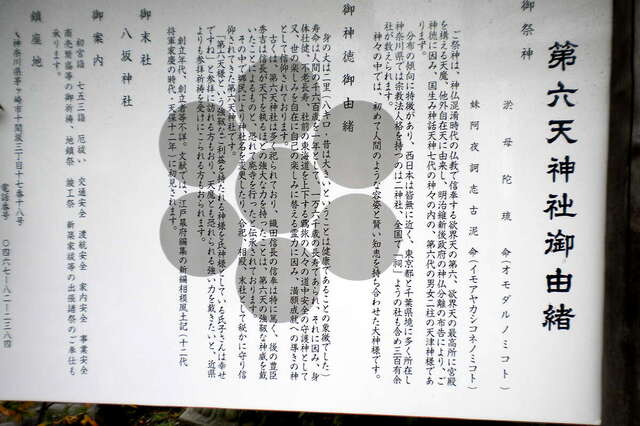 第六天神社御由緒
御祭神
淤母陀琉命(オモダルノミコト)
妹阿夜訶志古泥命(イモアヤカシコネノミコト)
ご祭神は、神仏混淆時代の仏教で信奉する欲界天の第六、欲界天の最高所に宮殿
を構える天魔、他外自在天に由来し、明治維新後政府の神仏分離の布告により、ご
神徳に因み、国生み神話天神七代の神々の内の、第六代の男女二柱の天津神様であ
ります。
分布の傾向に特徴があり、西日本は皆無に近く、東京都と千葉県境に多く所在し
神奈川県では宗教法人格を持つのは二神社、全国で「祠」ようの社も含め三百有余
社が数えられます。
神々の中では、初めて人間のような容姿と賢い知恵を持ち合わせた大神様です。
御神徳御由緒
身の丈は二里(八キロ、昔は大きいということは健康であることの象徴でした)
寿命は人間の千六百歳を一年として、一万六千歳の長寿であられ、それに因み、身
体壮健、不老長寿、社前の東海道を上下する覇旅の人々の道中安全の守護神として
又、世の楽しみを自在に自己の楽しみに替える霊力に因み、満願成就への導きの神
として信仰されております。
古くは、第六天神社は多く祀られており、織田信長の信奉は特に篤く、後の豊臣
秀吉は信長が天下を執るほどの強大な力を持ったことは、第六天の強靱な神威を戴
いたことによるものと、恐れて廃寺を行ったと伝承されております。
その中で郷民により神社名を変更したり、合祀、相殿、末社として秘かに守り信
仰されてきた第六天神社です。
「第六天様という強靱なご利益を持たれる神様を氏神様としている氏子さんは幸せ
ですね」と参拝に訪れる方もおり、天魔とも恐れられる強い力を戴きたいと、近県
よりも参拝祈祷を受けにこられる方もおられます。
創立年代、創立者等不詳。文献では、江戸幕府編集の新編相模風土記(十二代
将軍家慶の時代・天保十二年)に初見されます。
御末社
八坂神社
御案内
初宮詣 七五三詣 厄祓い 交通安全 渡航安全 家内安全 事業安全
商売繁盛等の御祈祷、地鎮祭 竣工祭 新築家祓等の出張諸祭のご奉仕も
承ります。
鎮座地
神奈川県茅ヶ崎市十間坂三丁目十七番十八号
電話番号 〇四六七-八二-二三八四